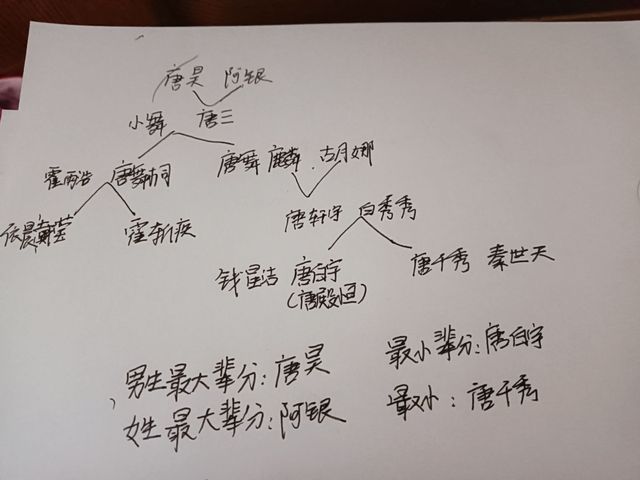 唐昊 阿银
小舞 唐三
霍雨浩 唐舞桐 唐舞麟 古月娜
霍斩疾 唐轩宇 白秀秀
钱星洁 唐白宇 唐千秀 秦世天
(唐殿恒)
男生最大辈分:唐昊 最小辈分:唐白宇
女生最大辈分:阿银 最小:唐千秀